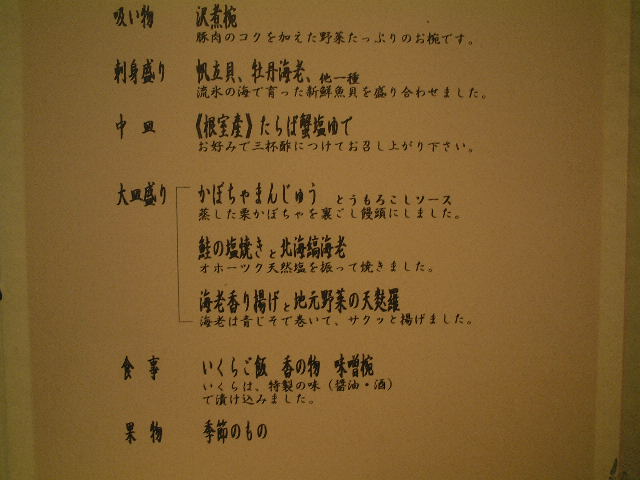 吸い物 沢煮椀
豚肉のコクを加えた野菜たっぷりのお椀です。
刺身盛り 帆立貝、牡丹海老、他一種
流氷の海で育った新鮮魚貝を盛り合わせました。
中皿 《根室産》たらば蟹塩ゆで
お好みで三杯酢につけてお召し上がり下さい。
大皿盛り かぼちゃまんじゅう とうもろこしソース
蒸した栗かぼちゃを裏ごし饅頭にしました。
鮭の塩焼きと北海縞海老
オホーツク天然塩を振って焼きました。
海老香り揚げと地元野菜の天麩羅
海老は青じそで巻いて、サクッと揚げました。
食事 いくらご飯 香の物 味噌椀
いくらは、特製の味（醤油・酒）
で漬け込みました。
果物 季節のもの